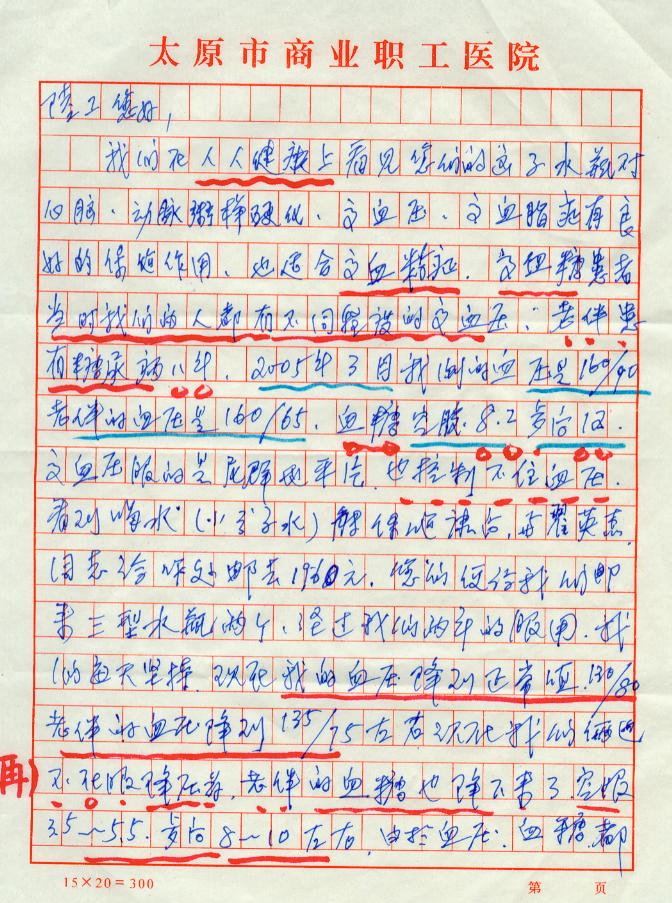 太原市商业职工医院
陆工您好,
我们在人人健康上看见您们的离子水瓶对
心脏、动脉粥样硬化、高血压、高血脂都有良
好的保健作用、也适合高血糖症。高血糖患者
当时我们两人都有不同程度的高血压:老伴患
有糖尿病八年。2005年3月我测的血压是160/90
老伴的血压是160/65。血糖空腹8.2 多向12.
高血压服的是尼群地平片,也控制不住血压。
看到喝水(小分子水)保健
同志给 邮去1960元。您们便给我们邮
来三型水瓶两个、经过我们两年的服用。我
们每天坚持。现在我的血压降到正常值。130/80
老伴的血压降到135/75左右现在我们俩已
不(再)在服降压药。老伴的血糖也降下来了。空腹
3.5~5.5. 多向8~10左右,由于血压、血糖都
15×20=300
第 页